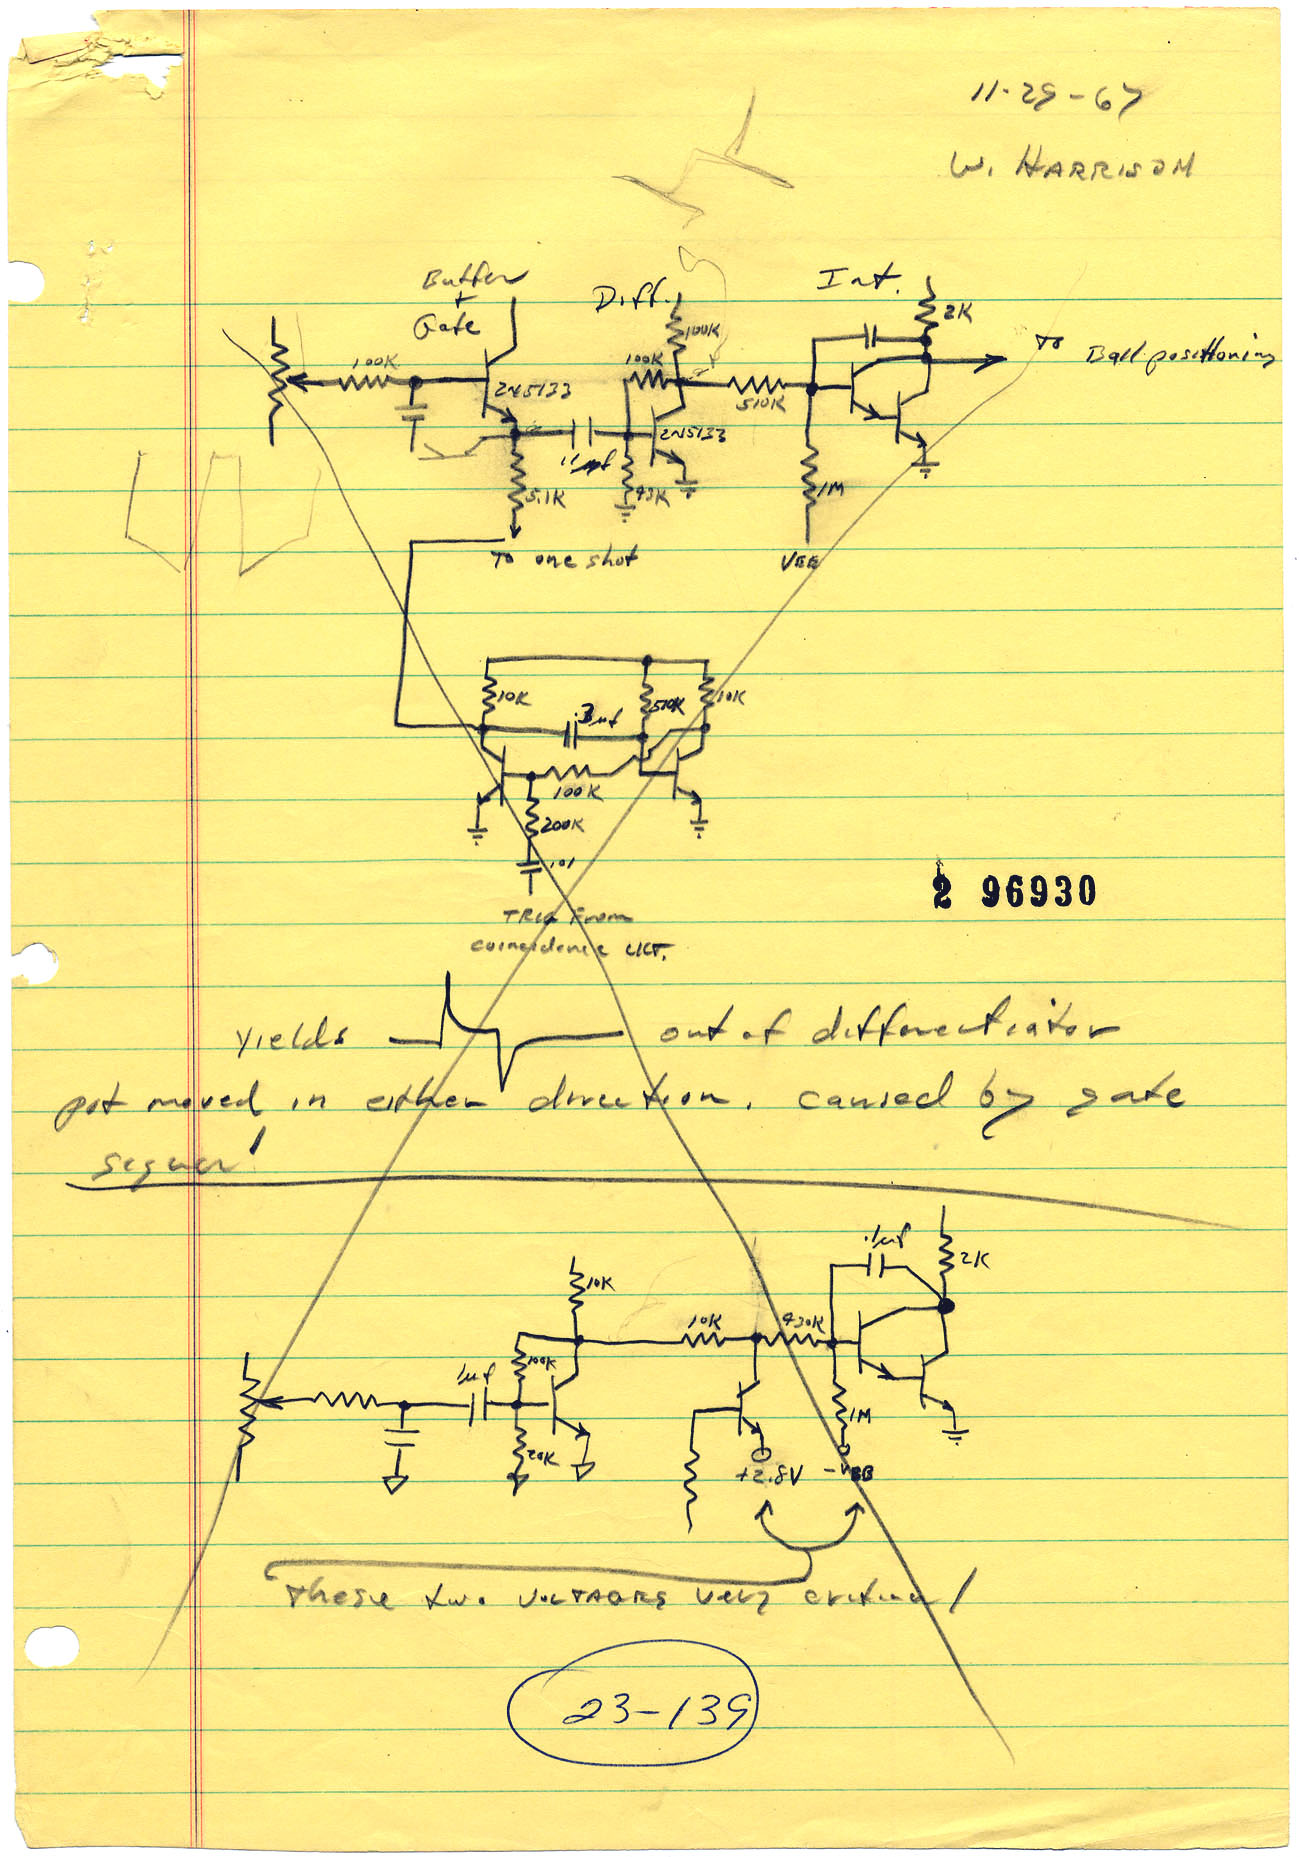 11-29-67
W. HARRISON
Buffer
+
Gate
Diff.
Int.
2K
100K
100K
100K
To
Ball positioning
2N5133
510K
2N5133
.1 µf
5.1K
43K
1M
To one shot
VEE
10K
510K
10K
.3µf
100K
200K
.01
TRIG From
coincidence CKT.
2 96930
Yields out of differentiator
pot moved in either direction. caused by gate
.1µf
2K
10K
10K
430K
100K
.1µf
1M
20K
+2.8V -VBB
These two VOLTAGES very critical
23-139